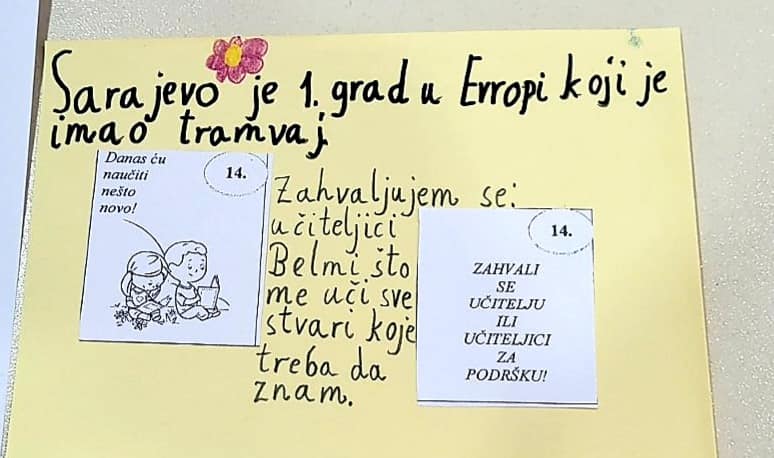 Sarajevo je 1. grad u Evropi koji je
imao tramvaj
Danas ću
naučiti
nešto
novo!
14.
Zahvaljujem se:
učiteljici
Belmi što
me uči sve
stvari koje
treba da
znam.
14.
ZAHVALI
SE
UČITELJU
ILI
UČITELJICI
ZA
PODRŠKU!